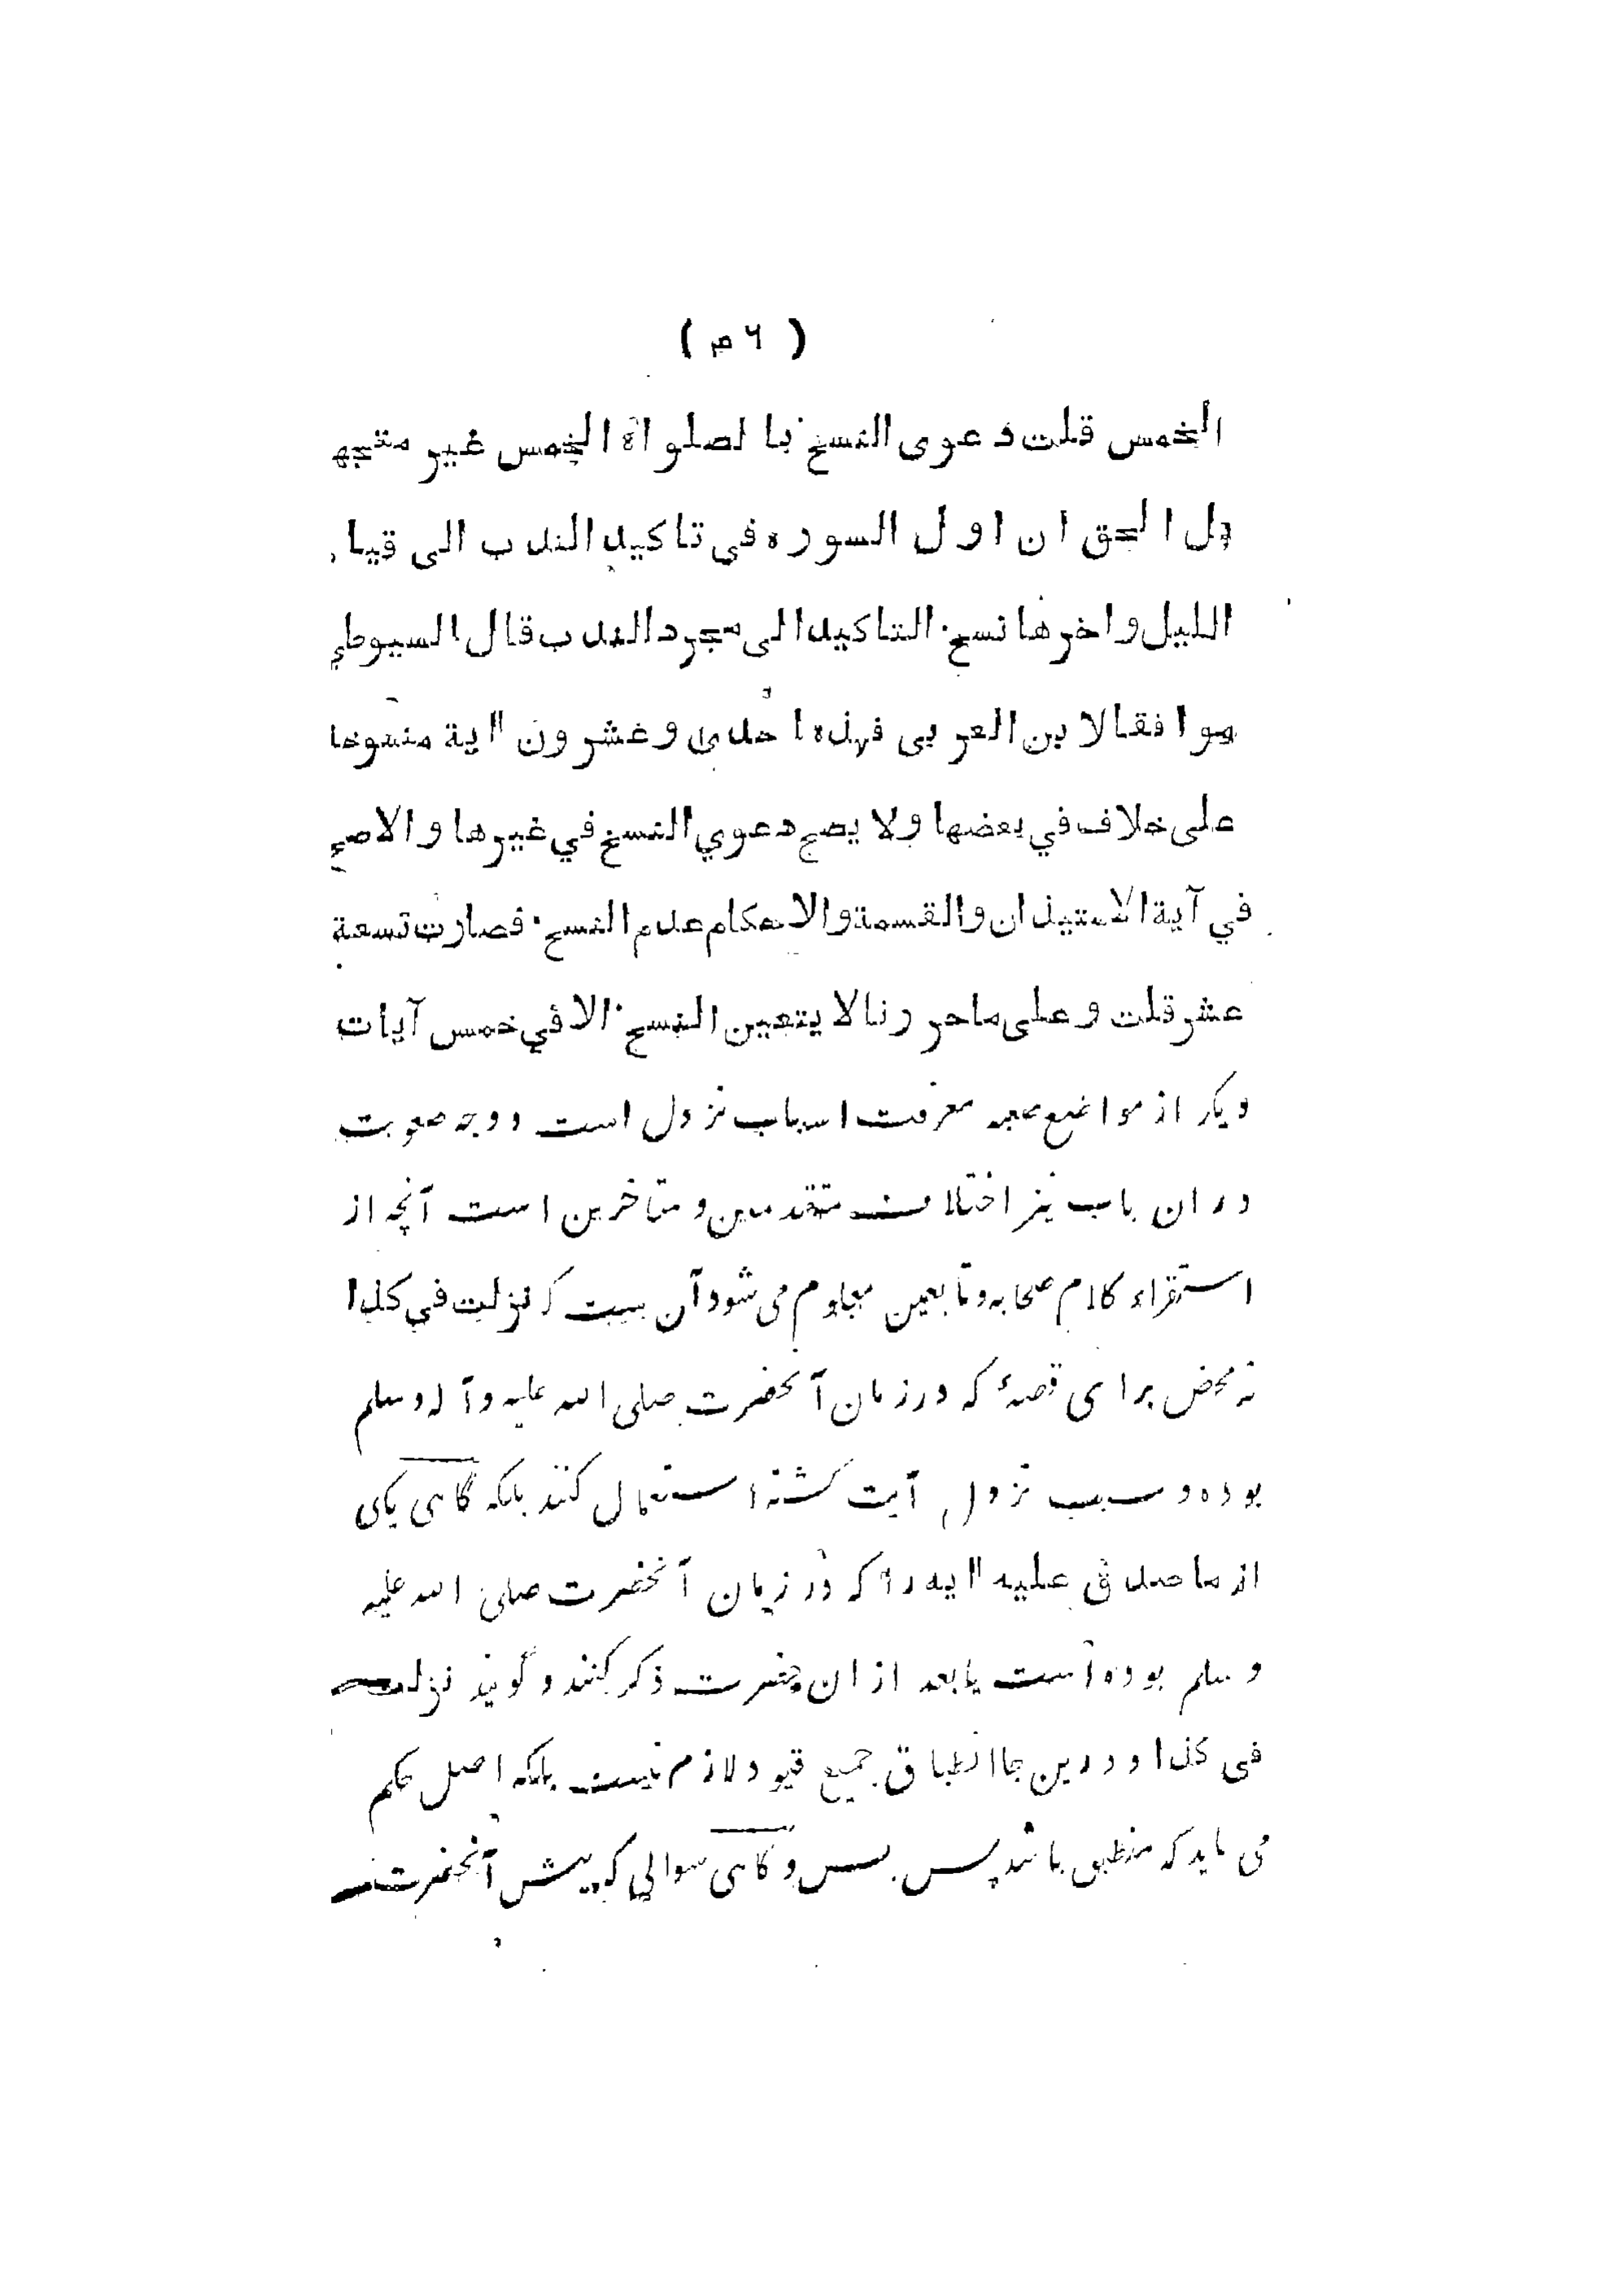 ( ۴۶ )
الخمس قلت دعوى النسخ با لصلواة الخمس غير متجه
بل الحق ان اول السوره فى تاكيد الندب الى قيا
الليل واخرها نسخ التاكيد الى مجرد الندب قال السيوطي
موافقا لابن العربى فهذه احدى وعشرون اية منسوخا
على خلاف في بعضها ولا يصح دعوي النسخ في غيرها والاصح
في آية الاستيذان والقسمة والاحكام عدم النسخ فصارت تسعة
عشر قلت وعلى ماحررنا لا يتعين النسخ الا في خمس آيات
ديگر از مواضع صعبه معرفت اسباب نزول است و وجه صعوبت
دران باب نيز اختلاف متقدمين و متاخرين است آنچه از
استقراء كلام صحابه و تابعين معلوم مى شود آن ست كه نزلت في كذا
نه محض براى قصهٔ كه درزمان آنحضرت صلى الله عليه وآله وسلم
بوده و سبب نزول آيت گشته استعمال كنند بلكه گاهى يكى
از ماصدق عليه الايه را كه در زمان آنحضرت صلى الله عليه
وسلم بوده است يابعد ازان حضرت ذكر كنند و گويند نزلت
فى كذا و درين جا انطباق جميع قيود لازم نيست بلكه اصل حكم
مى بايد كه منطبق باشد پس بس و گاهى سوالي كه پيش آنحضرت